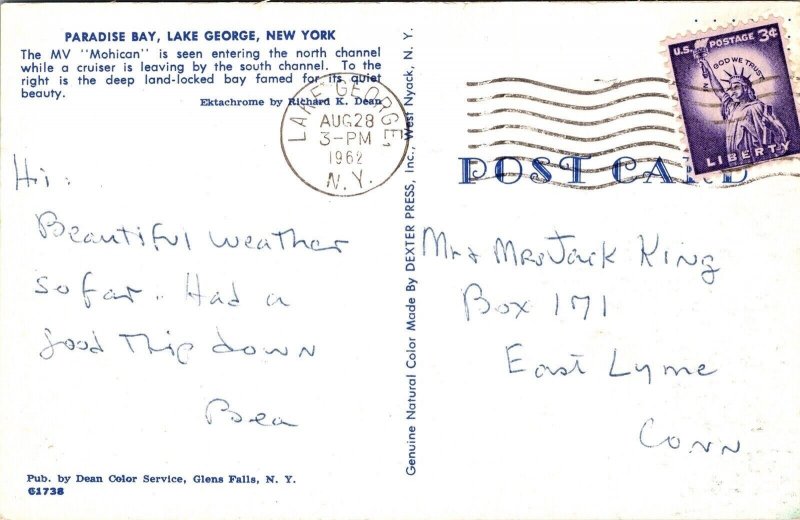 PARADISE BAY, LAKE GEORGE, NEW YORK
The MV "Mohican" is seen entering the north channel
while a cruiser is leaving by the south channel. To the
right is the deep land-locked bay famed for its quiet
beauty.
Ektachrome by Richard K. Dean
LAKE GEORGE,
AUG 28
3-PM
1962
N.Y.
Hi.
Beautiful weather
so far. Had a
good trip down
Bea
Pub. by Dean Color Service, Glens Falls, N. Y.
61738
Genuine Natural Color Made By DEXTER PRESS, Inc., West Nyack, N. Y.
U.S. POSTAGE 3¢
IN GOD WE TRUST
LIBERTY
POST CARD
Mr & Mrs Jack King
Box 171
East Lyme
Conn